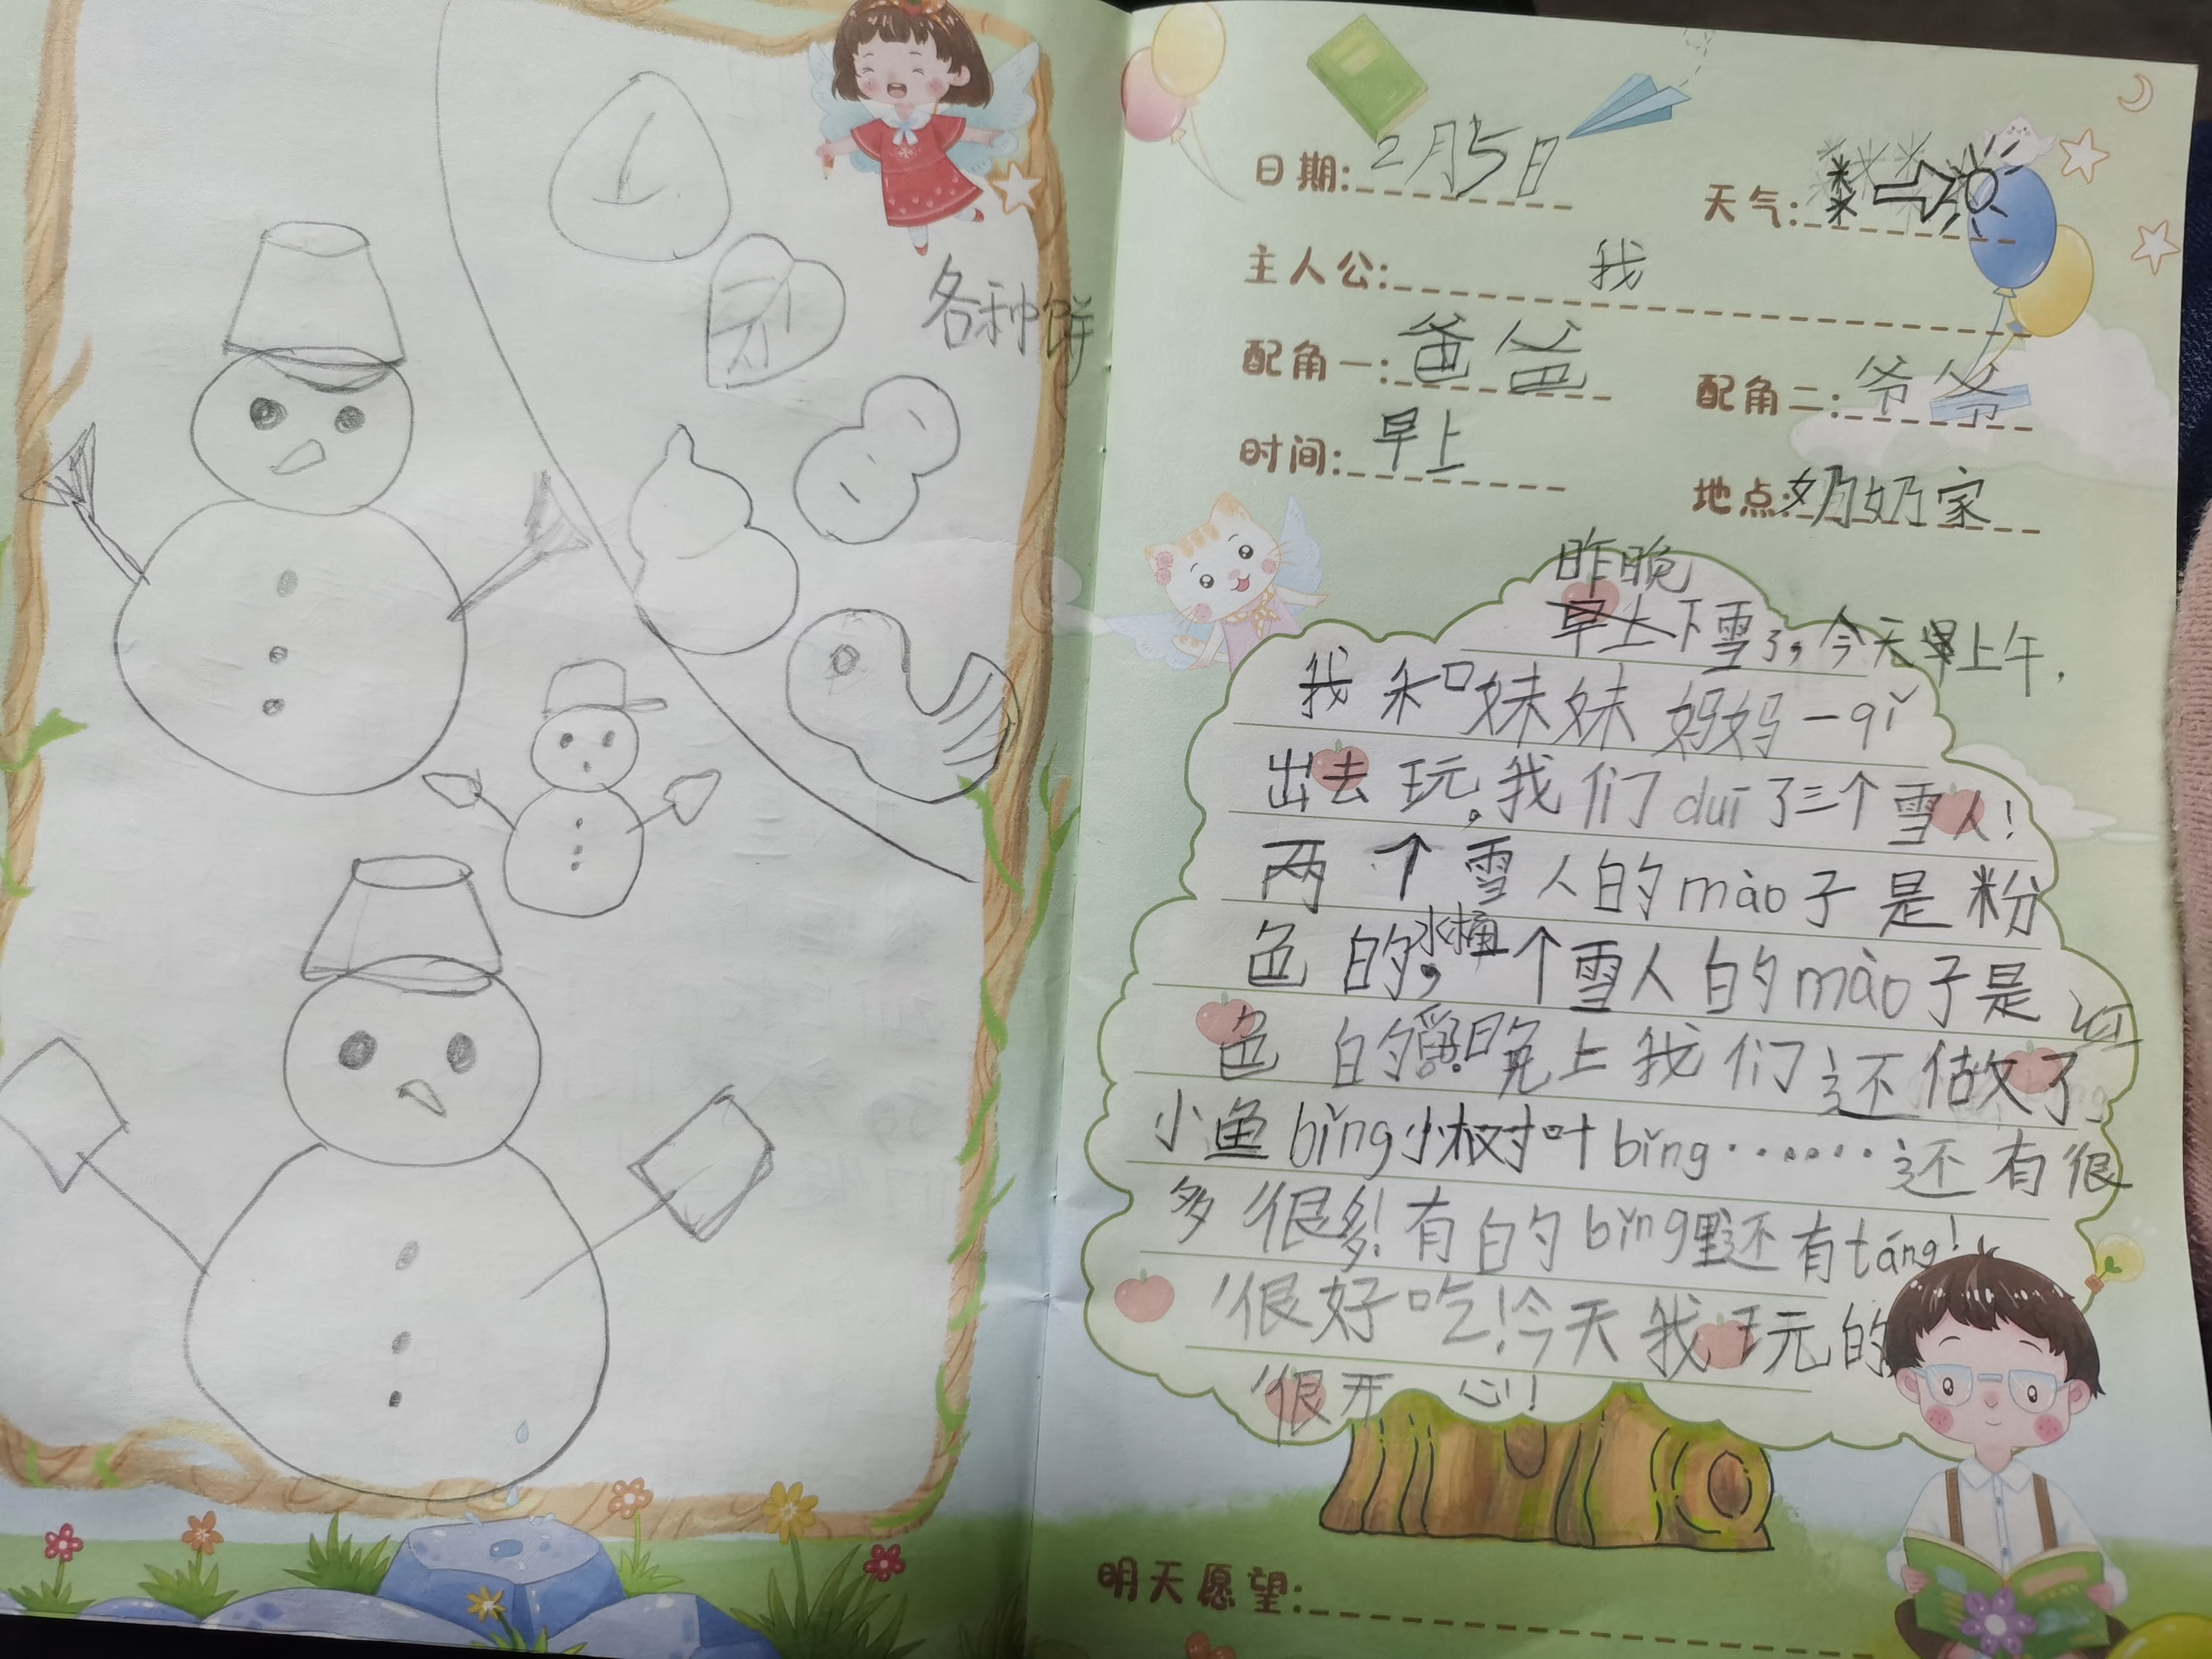 各种饼
日期: 2月5日
天气:
主人公: 我
配角一: 爸爸
配角二: 爷爷
时间: 早上
地点: 奶奶家
昨晚
早上下雪了，今天早上午，
我和妹妹妈妈一qǐ
出去玩，我们duī了三个雪人！
两个雪人的mào子是粉
色的，水桶个雪人的mào子是红
色的，晚上我们还做了
小鱼bǐng小树叶bǐng……还有很
多很多！有的bǐng里还有táng！
很好吃！今天我玩的
很开心！
明天愿望: